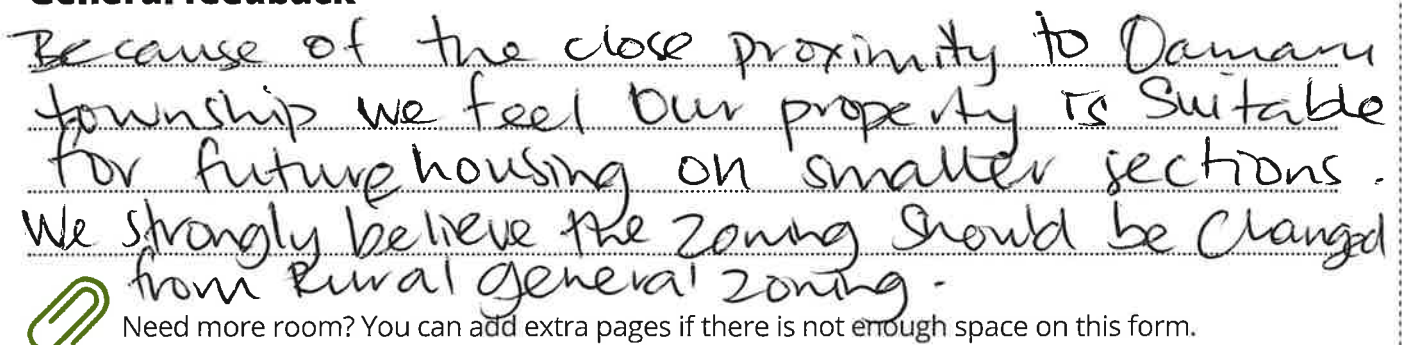 General feedback
Because of the close proximity to Oamaru
township we feel our property is suitable
for future housing on smaller sections.
We strongly believe the zoning should be changed
from Rural general zoning.
Need more room? You can add extra pages if there is not enough space on this form.